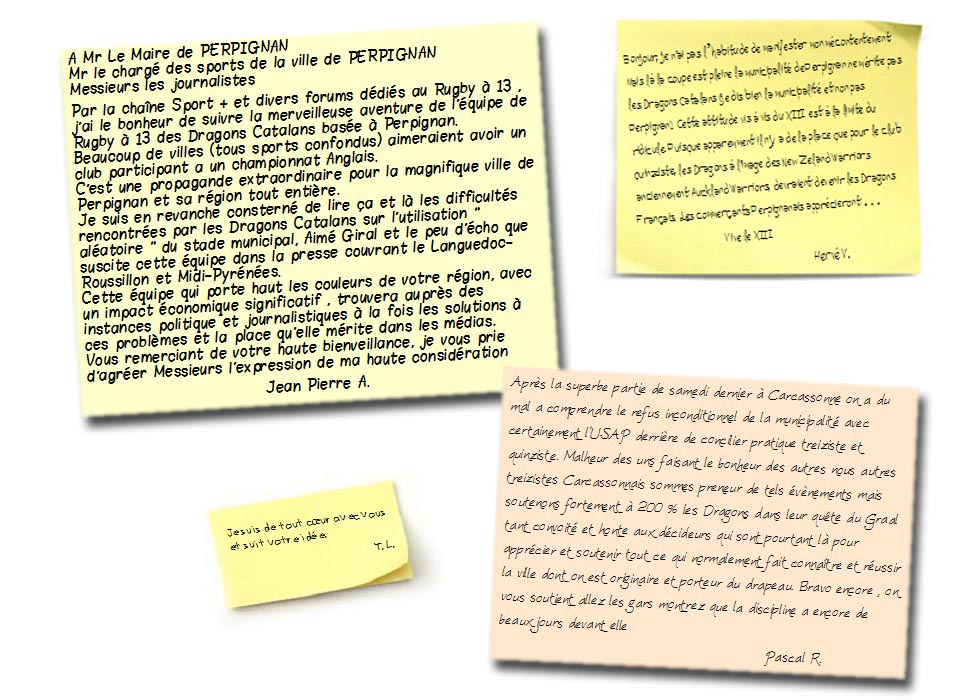 A Mr Le Maire de PERPIGNAN
Mr le chargé des sports de la ville de PERPIGNAN
Messieurs les journalistes
Par la chaîne Sport + et divers forums dédiés au Rugby à 13 ,
j'ai le bonheur de suivre la merveilleuse aventure de l'équipe de
Rugby à 13 des Dragons Catalans basée à Perpignan.
Beaucoup de villes (tous sports confondus) aimeraient avoir un
club participant a un championnat Anglais.
C'est une propagande extraordinaire pour la magnifique ville de
Perpignan et sa région tout entière.
Je suis en revanche consterné de lire ça et là les difficultés
rencontrées par les Dragons Catalans sur l'utilisation "
aléatoire " du stade municipal, Aimé Giral et le peu d'écho que
suscite cette équipe dans la presse couvrant le Languedoc-
Roussillon et Midi-Pyrénées.
Cette équipe qui porte haut les couleurs de votre région, avec
un impact économique significatif , trouvera auprès des
instances politique et journalistiques à la fois les solutions à
ces problèmes et la place qu'elle mérite dans les médias.
Vous remerciant de votre haute bienveillance, je vous prie
d'agréer Messieurs l'expression de ma haute considération
Jean Pierre A.
Bonjour, je n'ai pas l'habitude de manifester mon mécontentement
Mais là la coupe est pleine la municipalité de Perpignan ne mérite pas
les Dragons Catalans (je dis bien la municipalité et non pas
Perpignan). Cette attitude vis à vis du XIII est à la limite du
ridicule. Puisque apparement il n'y a de la place que pour le club
quinziste, les Dragons à l'image des New Zeland Warriors
anciennement Auckland Warriors, devraient devenir les Dragons
Français, des commerçants Perpignanais apprécieront ...
Vive le XIII
Hervé V.
Après la superbe partie de samedi dernier à Carcassonne on a du
mal a comprendre le refus inconditionnel de la municipalité avec
certainement l'USAP derrière de concilier pratique treiziste et
quinziste. Malheur des uns faisant le bonheur des autres nous autres
treizistes Carcassonnais sommes preneur de tels évènements mais
soutenons fortement à 200 % les Dragons dans leur quête du Graal
tant convoité et honte aux décideurs qui sont pourtant là pour
apprécier et soutenir tout ce qui normalement fait connaître et réussir
la ville dont on est originaire et porteur du drapeau. Bravo encore , on
vous soutient allez les gars montrez que la discipline a encore de
beaux jours devant elle
Pascal R.
Je suis de tout cœur avec vous
et suit votre idée.
T.L.